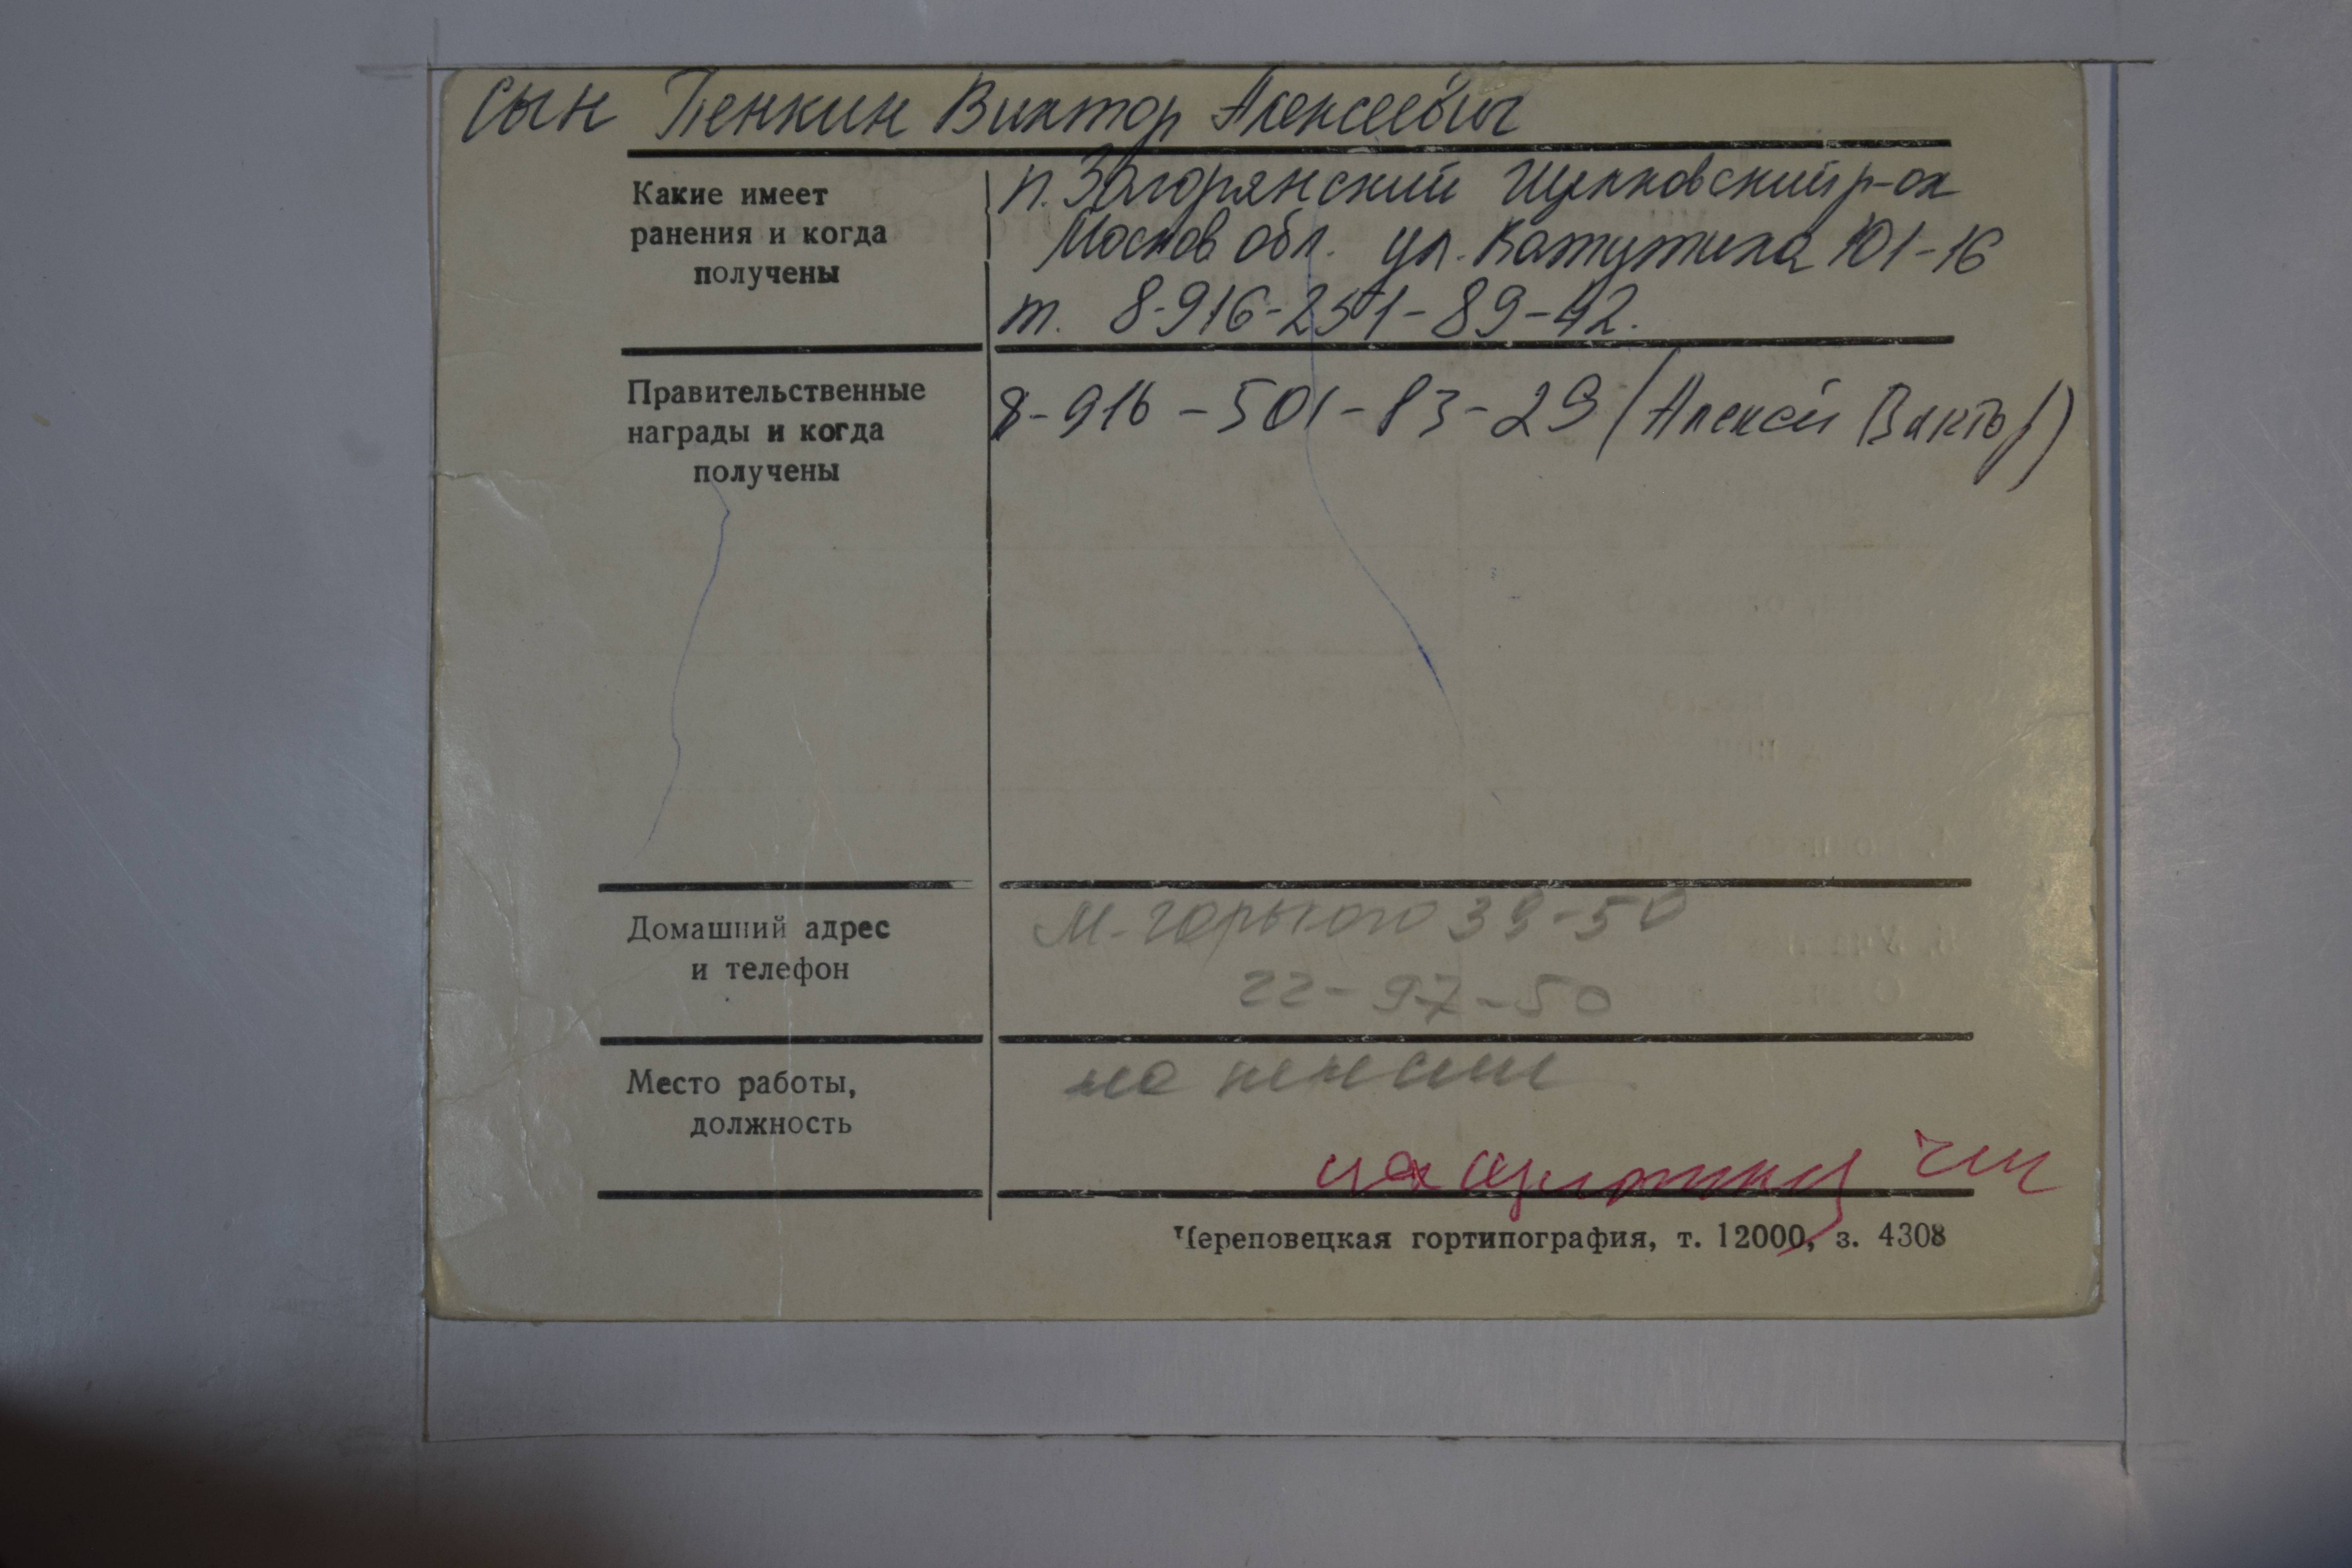 сын Пенкин Виктор Алексеевич
Какие имеет
ранения и когда
получены
п. Загорянский Щелковский р-он
Москов обл. ул. Ватутина 101-16
т. 8-916-251-89-42.
Правительственные
награды и когда
получены
8-916-501-83-29 (Алексей Виктор)
Домашний адрес
и телефон
М-Горького 39-50
22-97-50
Место работы,
должность
на пенсии
Череповецкая гортипография, т. 12000, з. 4308